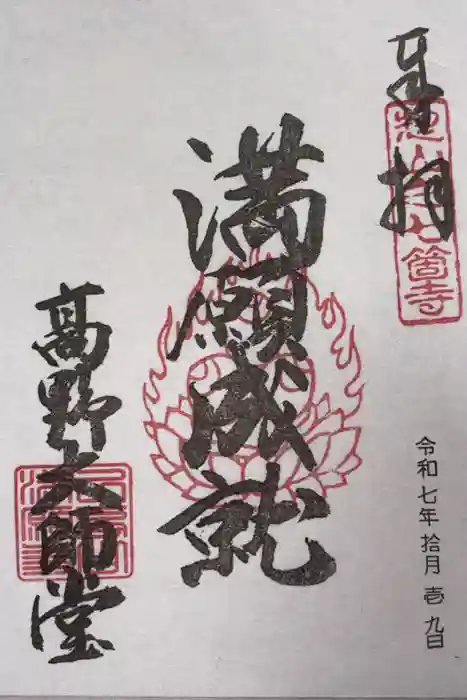 奉拝
令和七年拾月壱九日
満願成就
高野大師堂